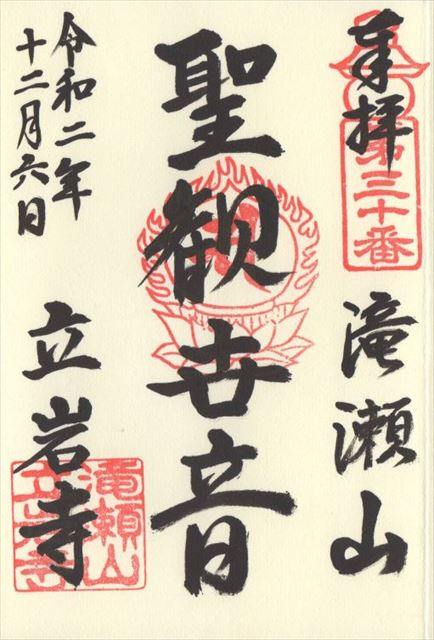 奉拝
第三十番
滝瀬山
聖観世音
令和二年
十二月六日
立岩寺
滝瀬山
立岩寺